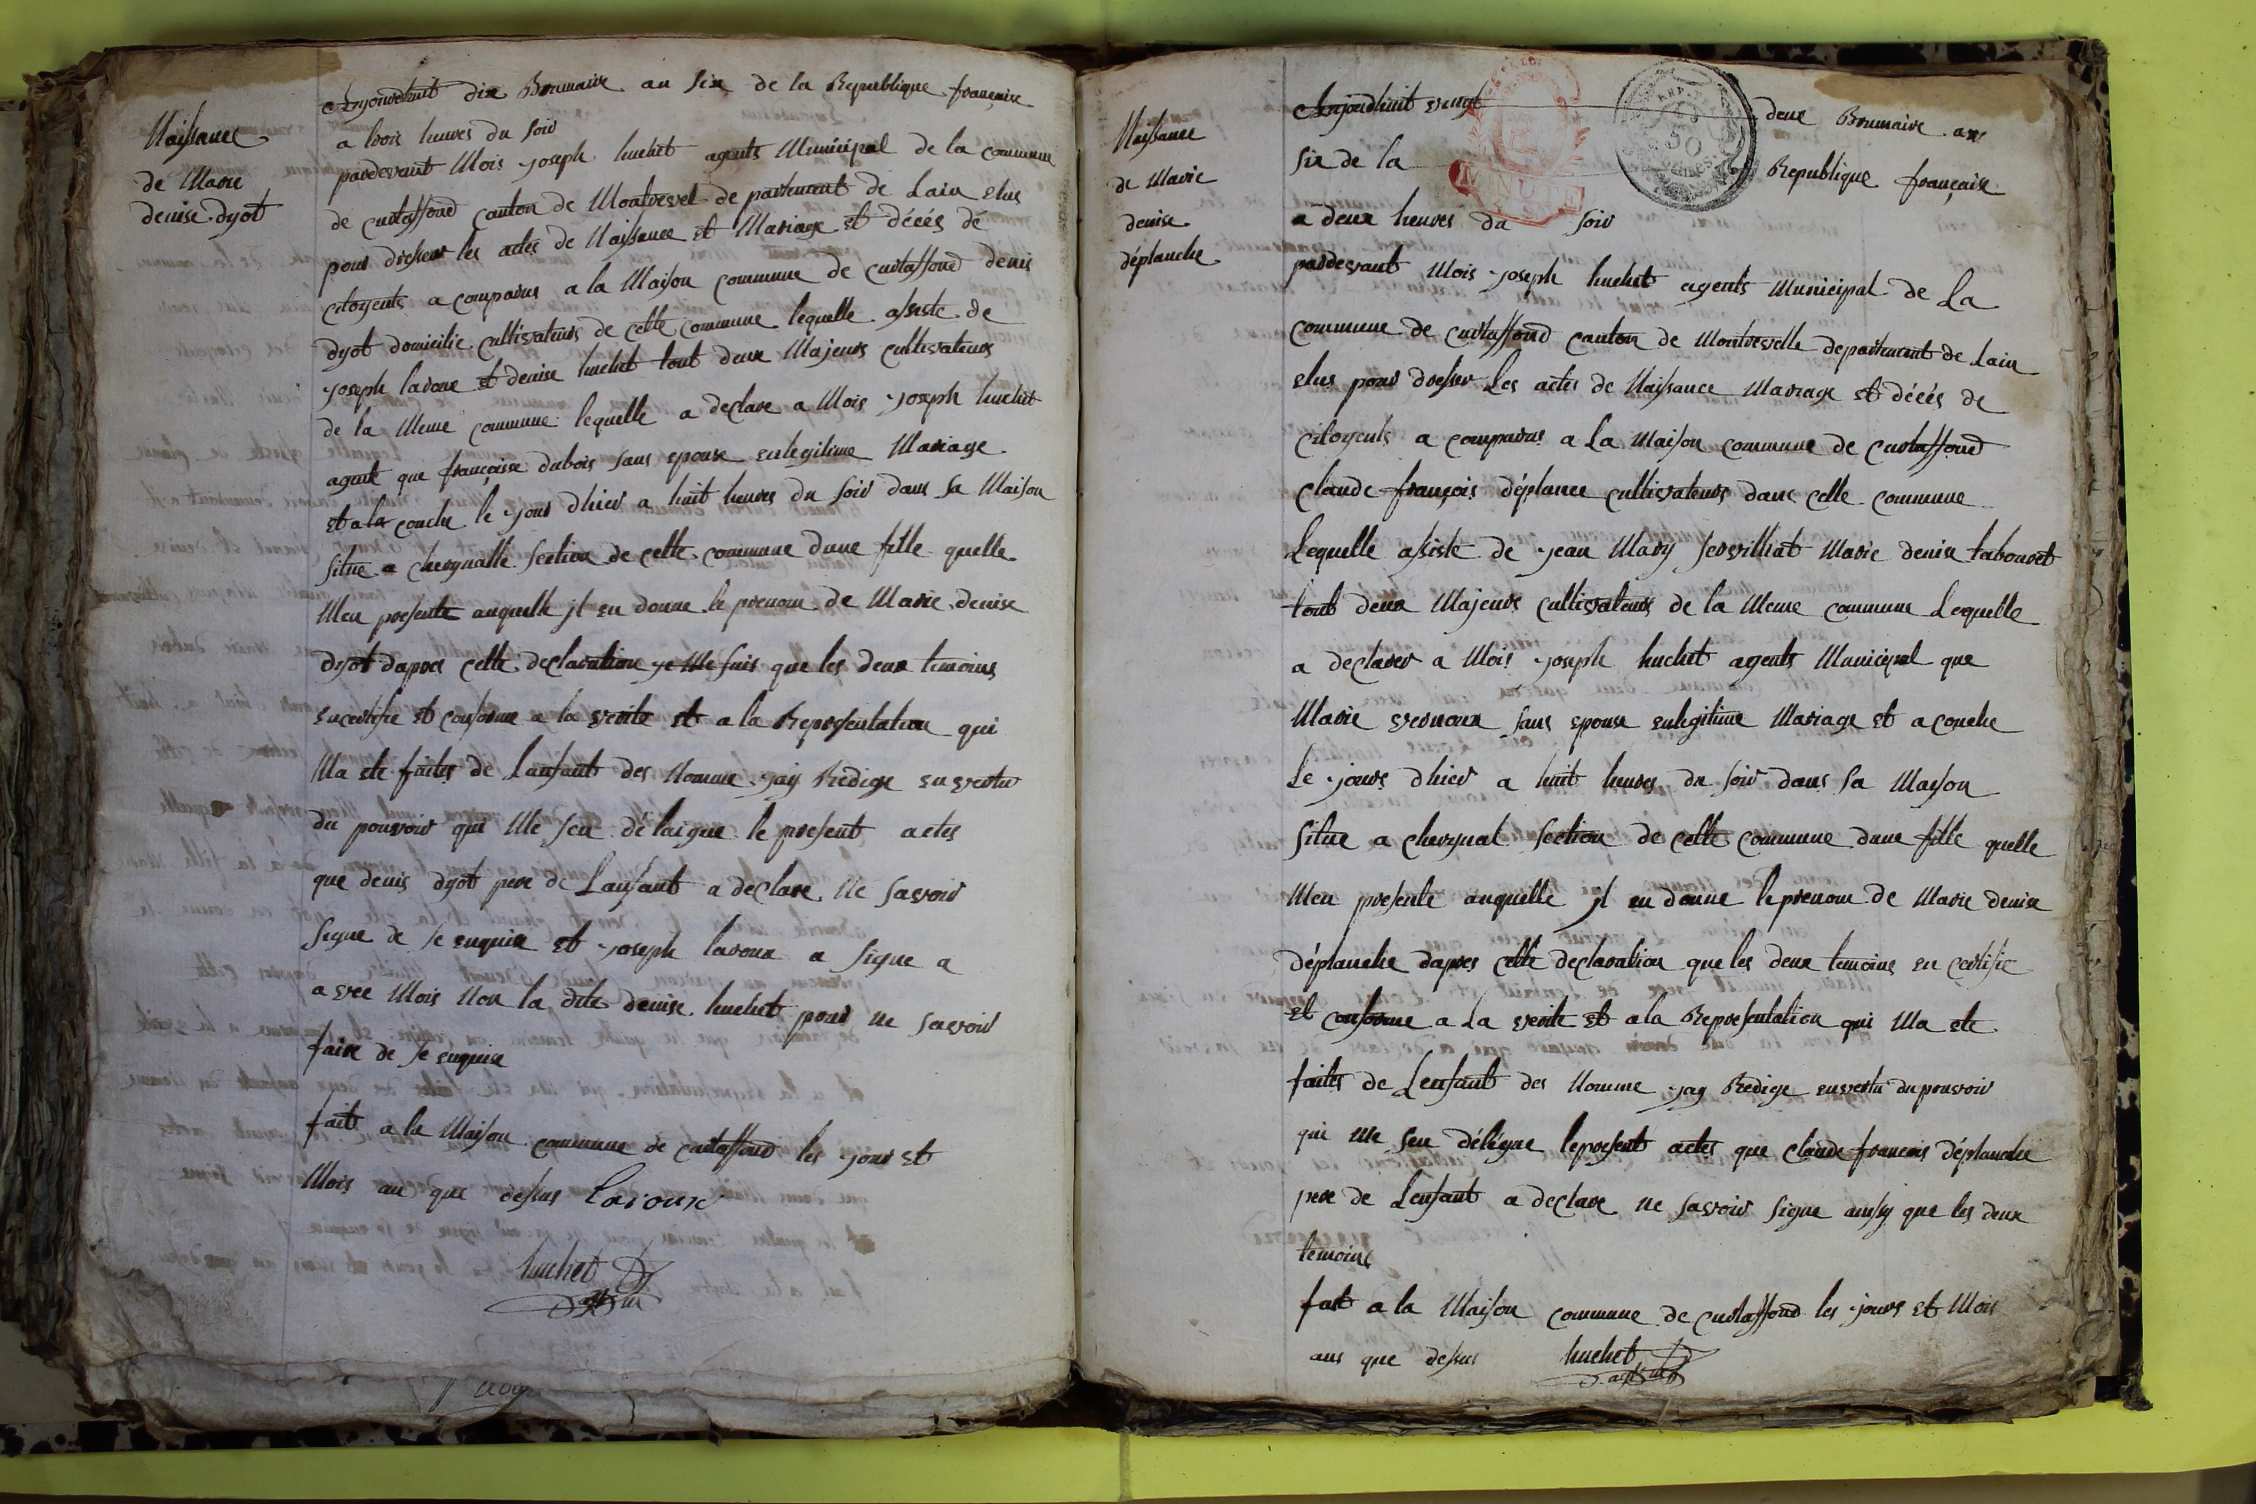 Naissance
de Marie
denise dyot
Aujourdhuit dix Brumaire an Six de la Republique françoise
a trois heures du soir
pardevant Mois joseph huchet agents Municipal de la commune
de curtaffond canton de Montrevel de partement de Lain elus
pour dresser les actes de Naissance et Mariage et décés dé
citoyents a comparus a la Maison commune de curtaffond denis
dyot domicilie cultivateurs de cette commune lequelle assiste de
joseph laroux et denise huchet tout deux Majeurs cultivateurs
de la Meme commune lequelle a declare a Mois joseph huchet
agent que françoise dubois sans epouse enlegitime Mariage
et ala couche le jour dhier a huit heures du soir dans sa Maison
situe a chevignatte section de cette commune dune fille quelle
Men presente auquelle jl en donne le prenom de Marie denise
dyot dapres cette declaration je Me suis que les deux temoins
encertifie et conforme a la verite et a la Representation qui
Ma ete faites de Lanfant des Nomme jay Redige en vertu
du pouvoir qui Me seu délaigue le present actes
que denis dyot pere de Lanfant a declare Ne savoir
signe de se enquise et joseph laroux a signe a
avec Mois Non la dite denise huchet pour ne savoir
faire de se enquise
fait a la Maison commune de curtaffond les jour et
Mois an que dessus Laroux
huchet
agent
Naissance
de Marie
denise
déplanche
Aujourdhuit vingt deux Brumaire an
six de la Republique françoise
a deux heures du soir
pardevant Mois joseph huchet agents Municipal de La
commune de curtaffond canton de Montrevelle departement de Lain
elus pour dresser Les actes de Naissance Mariage et décés de
citoyents a comparus a La Maison commune de curtaffond
claude françois déplance cultivateurs dans cette commune
Lequelle assiste de jean Mary servilliat Marie denise tabouret
tout deux Majeurs cultivateurs de la Meme commune Lequelle
a declarer a Mois joseph huchet agents Municipal que
Marie vernoux sans epouse enlegitime Mariage et a couche
Le jours dhier a huit heures du soir dans sa Maison
situe a chevignat section de cette commune dune fille quelle
Men presente auquelle jl en donne le prenom de Marie denise
déplanche dapres cette declaration que les deux temoins en certifie
et conforme a La verite et ala Representation qui Ma ete
faites de Lenfant des Nomme jay Redige envertu du pouvoir
qui Me seu délégue lepresent actes que claude françois déplanche
pere de Lenfant a declare ne savoir signe ainsy que les deux
temoins
fait a la Maison commune de curtaffond les jours et Mois
ans que dessus huchet
agent
MINUTE
50